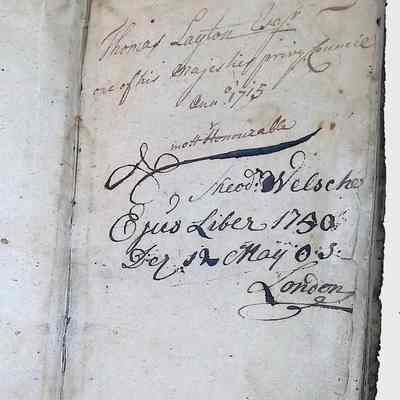 Thomas Layton Esqr
one of his Majesties privy Councie
Ann° 1715
mott Honourable
Theodr. Welsche
Ejus Liber 1750
12 May O:S:
London